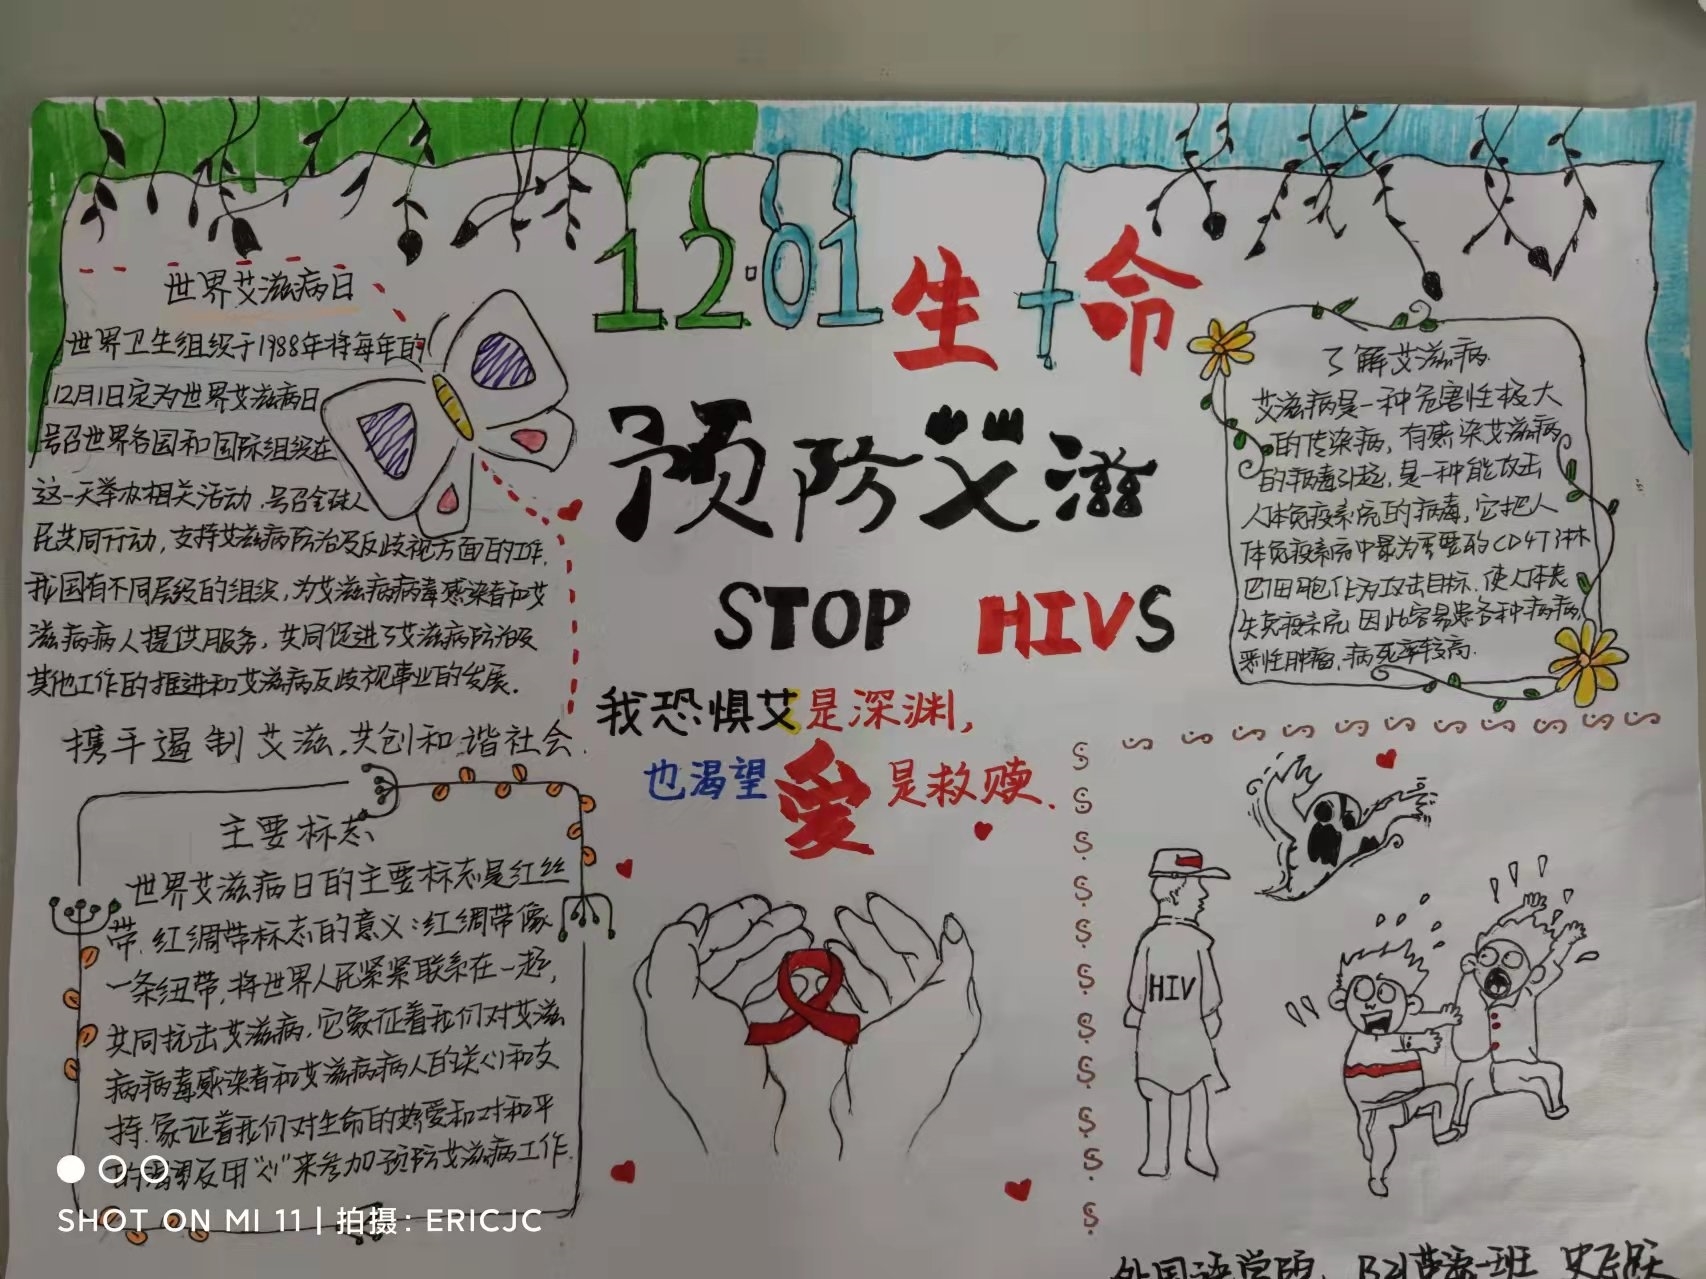 12·01生命
预防艾滋
STOP HIVS
我恐惧艾是深渊,
也渴望爱是救赎.
世界艾滋病日
世界卫生组织于1988年将每年的
12月1日定为世界艾滋病日
号召世界各国和国际组织在
这一天举办相关活动,号召全球人
民共同行动,支持艾滋病防治及反歧视方面的工作.
我国有不同层级的组织,为艾滋病病毒感染者和艾
滋病病人提供服务,共同促进了艾滋病防治及
其他工作的推进和艾滋病反歧视事业的发展.
携手遏制艾滋,共创和谐社会.
主要标志
世界艾滋病日的主要标志是红丝
带.红绸带标志的意义:红绸带像
一条纽带,将世界人民紧紧联系在一起,
共同抗击艾滋病,它象征着我们对艾滋
病病毒感染者和艾滋病病人的关心和支
持.象征着我们对生命的热爱和对和平
的渴望及用“心”来参加预防艾滋病工作.
了解艾滋病
艾滋病是一种危害性极大
的传染病,有感染艾滋病
的病毒引起,是一种能攻击
人体免疫系统的病毒,它把人
体免疫系统中最为重要的CD4T淋
巴细胞作为攻击目标,使人体丧
失免疫系统 因此容易患各种疾病,
恶性肿瘤,病死率较高.
HIV
外国语学院 B21 班
SHOT ON MI 11 | 拍摄: ERICJC